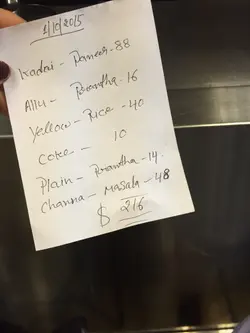 1/10/2015
Kadai - Paneer - 88
Allu - Parantha - 16
Yellow - Rice - 40
Coke - 10
Plain - Parantha - 14.
Channa - Masala - 48
$ 216